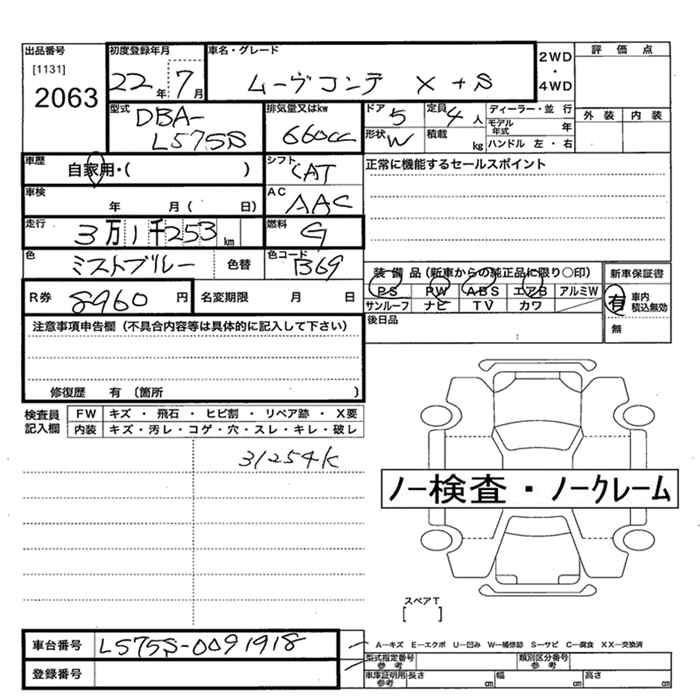 出品番号 初度登録年月 車名・グレード 2WD ・ 4WD 評 価 点
[1131]
2063
22年 7月 ムーヴコンテ X+S
型式 DBA-L575S 排気量又はkw 660cc ドア 5 定員 4人 ディーラー・並 行
形状 W 積載 kg モデル年式 年
ハンドル 左・右
外 装 内 装
車歴 自家用・( ) シフト CAT 正常に機能するセールスポイント
車検 年 月( 日) AC AAC
走行 3万1千253km 燃料 G
色 ミストブルー 色替 色コード B69
装 備 品(新車からの純正品に限り○印) 新車保証書
PS PW ABS エアB アルミW
サンルーフ ナビ TV カワ
有 車内 積込無効
無
R券 8960 円 名変期限 月 日
後日品
注意事項申告欄(不具合内容等は具体的に記入して下さい)
修復歴 有(箇所 )
検査員記入欄 FW キズ・飛石・ヒビ割・リペア跡・X要
内装 キズ・汚レ・コゲ・穴・スレ・キレ・破レ
31254K
ノー検査・ノークレーム
スペアT
[ ]
車台番号 L575S-0091918
登録番号
A―キズ E―エクボ U―凹み W―補修跡 S―サビ C―腐食 XX―交換済
型式指定番号 参考 類別区分番号 参考
車庫証明用 参考 長さ cm 幅 cm 高さ cm